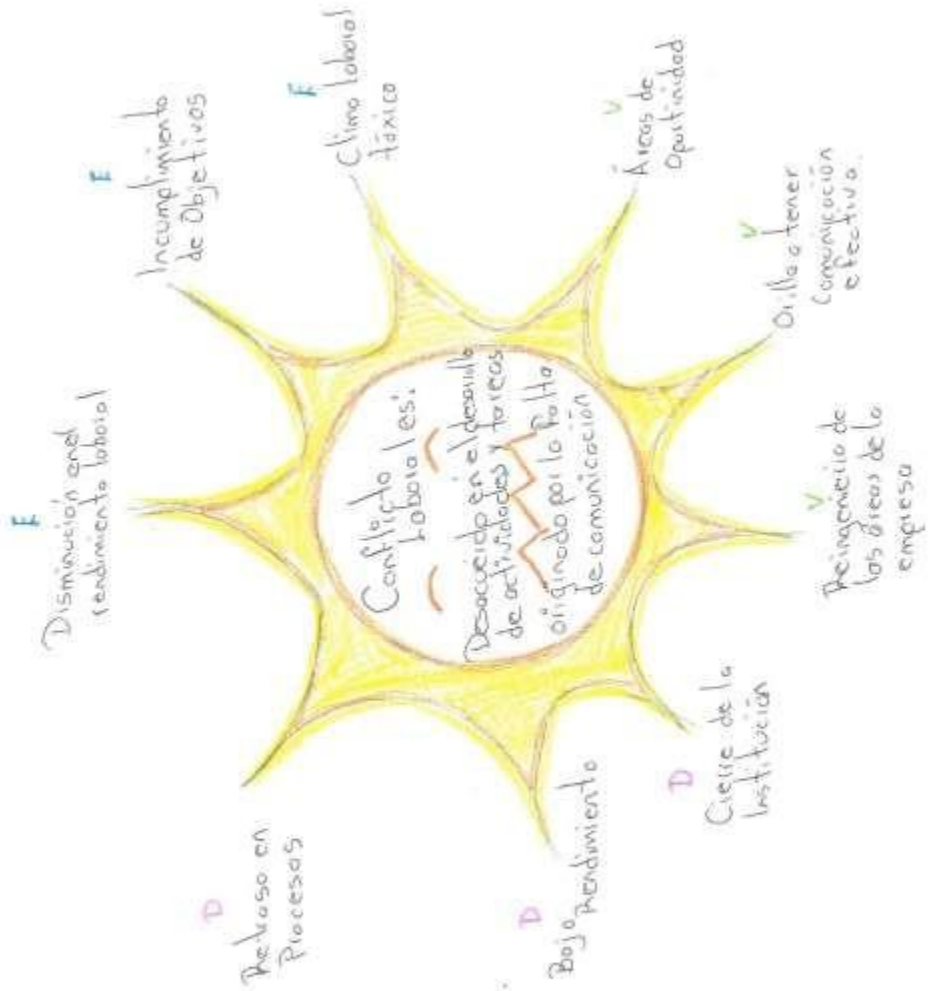 Conflicto
Laboral es:
Desacuerdo en el desarrollo
de actividades y tareas
originado por la falta
de comunicación
E
Disminución en el
rendimiento laboral
E
Incumplimiento
de Objetivos
E
Clima laboral
tóxico
V
Áreas de
Oportinidad
V
Orilla a tener
comunicación
efectiva.
V
Reingeniería de
las áreas de la
empresa
D
Cierre de la
Institución
D
Bajo Rendimiento
D
Retraso en
Procesos